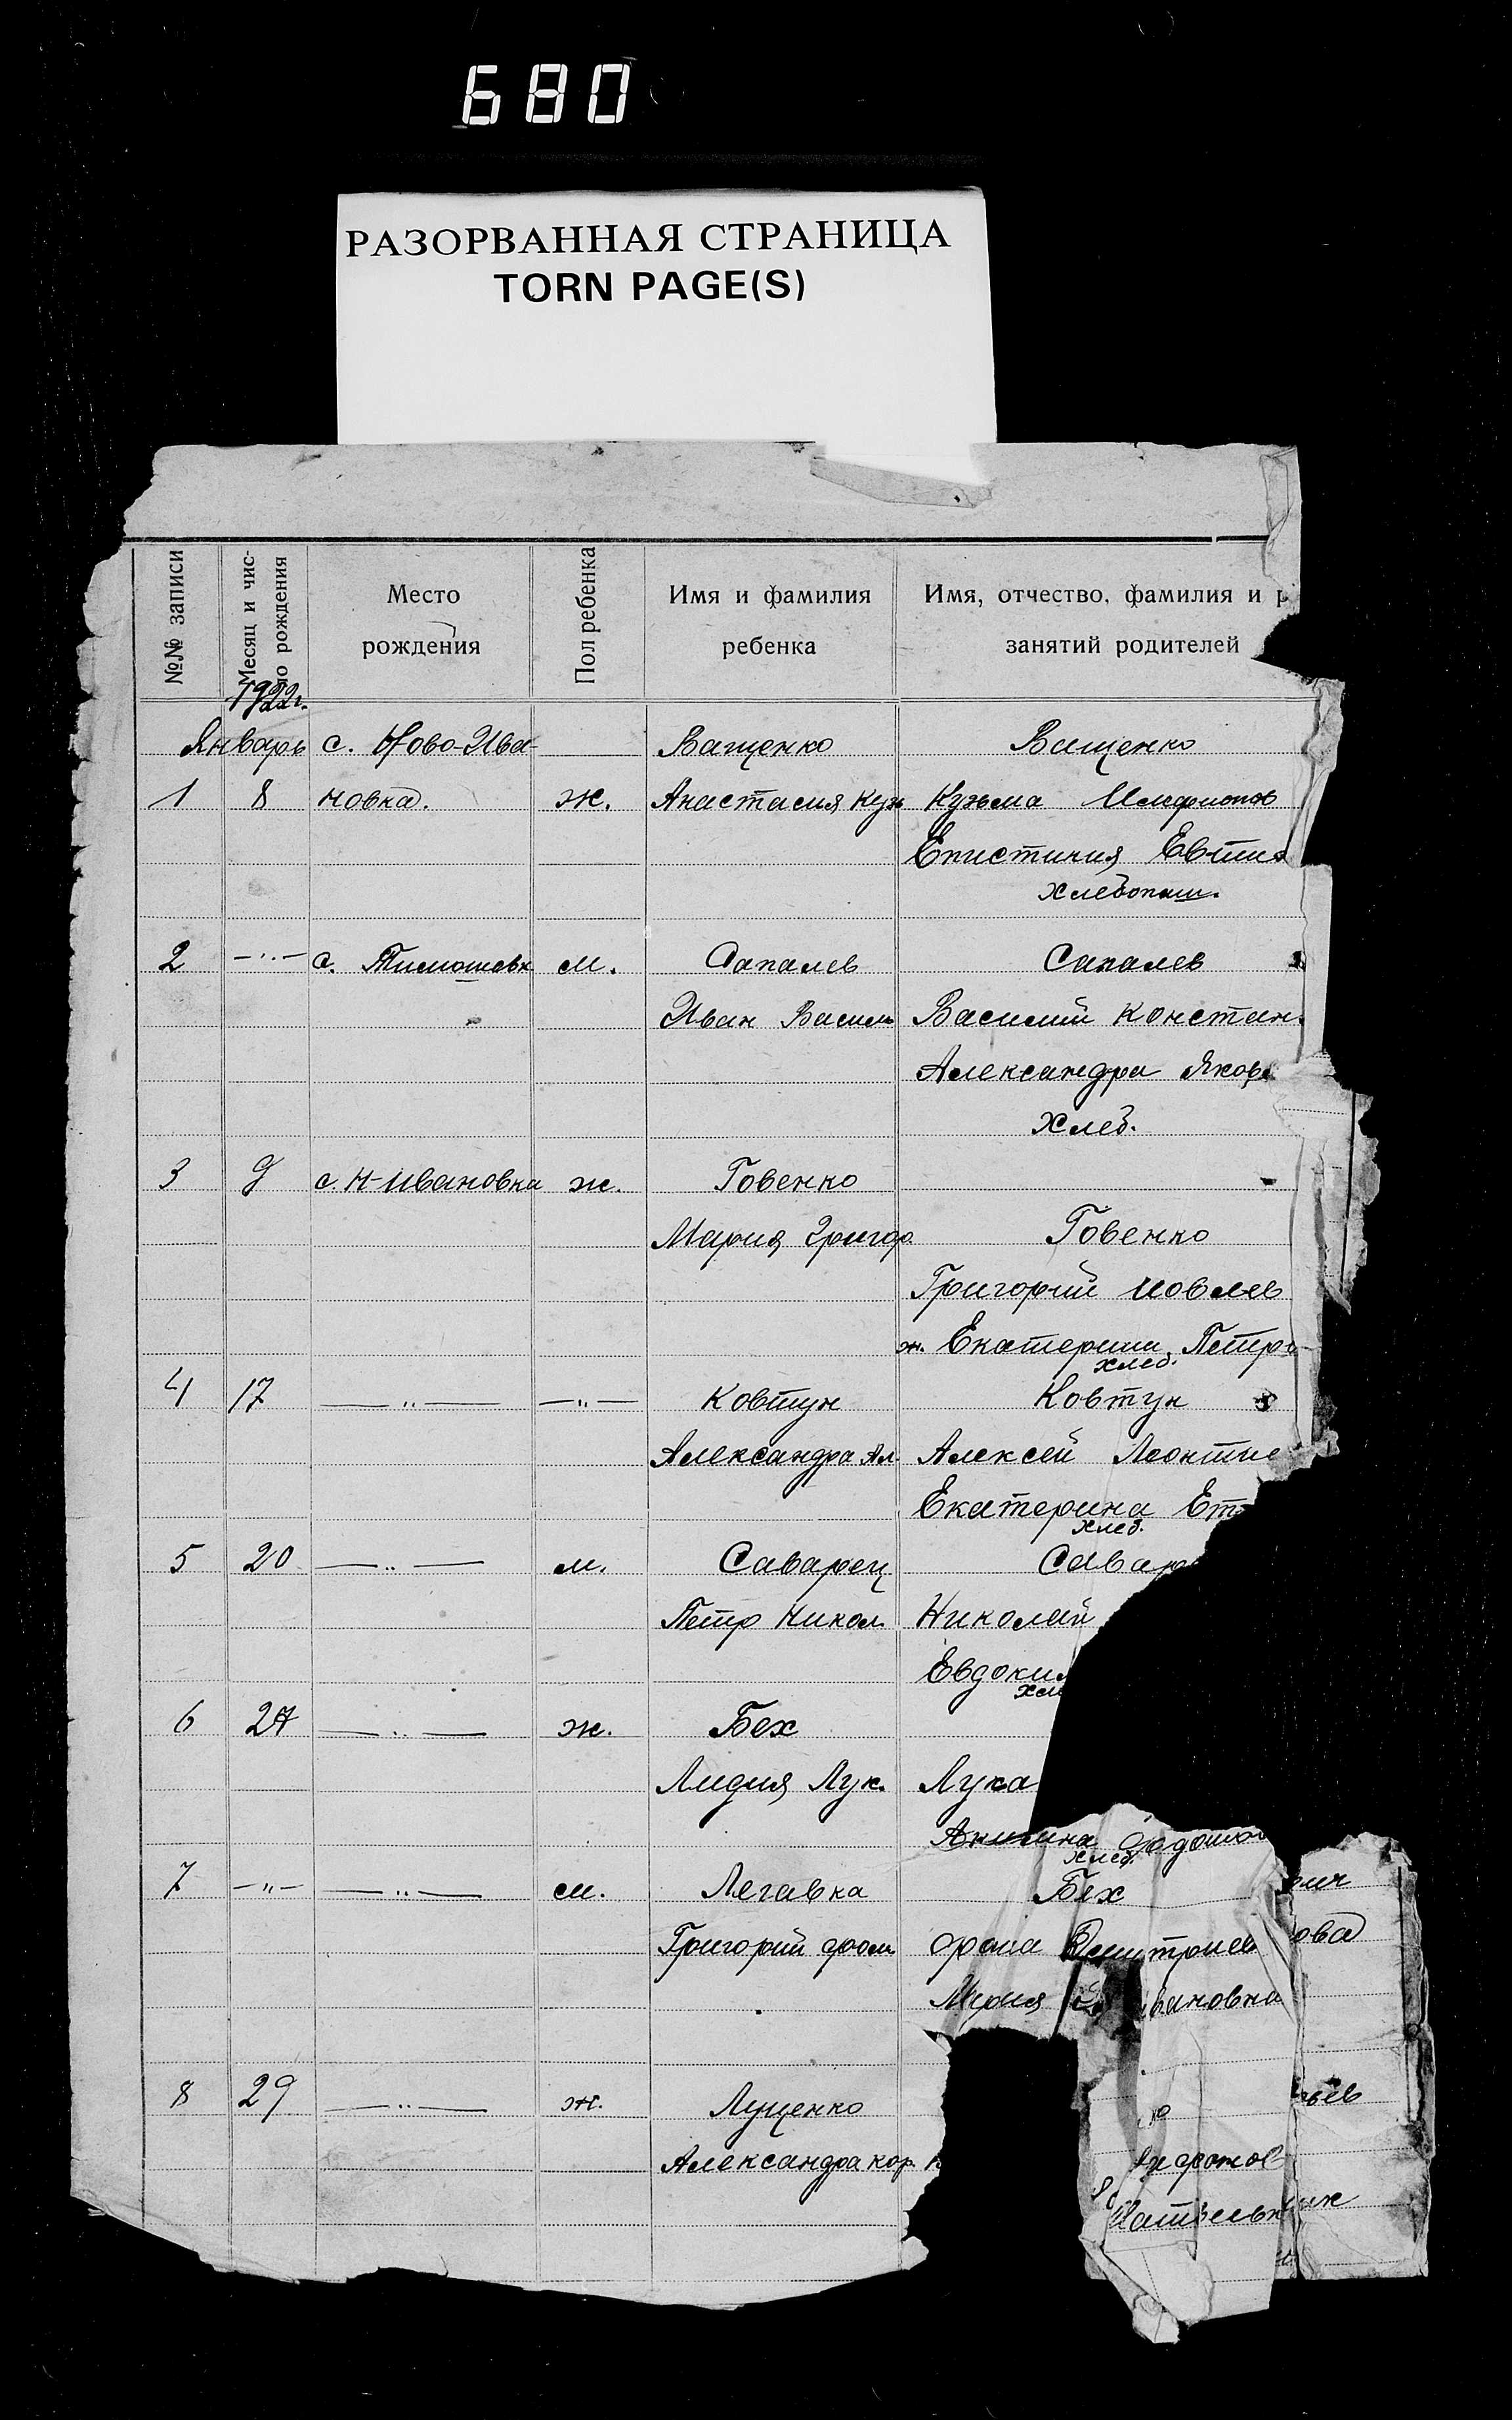 680
РАЗОРВАННАЯ СТРАНИЦА
TORN PAGE(S)
№№ записи
Месяц и чис-
ло рождения
Место
рождения
Пол ребенка
Имя и фамилия
ребенка
Имя, отчество, фамилия и р
занятий родителей
1922г.
Январь с. Ново-Ива- Ващенко Ващенко
1 8 новка. ж. Анастасия Кузь Кузьма
Епистимия Евти
хлебопаш.
2 —"— с. Тимошевк м. Сапалев Сапалев
Иван Васил Василий Констан.
Александра Яков
Хлеб.
3 9 с. Н-Ивановка ж. Говенко
Мария Григор. Говенко
Григорий Иовлев
ж. Екатерина Петро
хлеб.
4 17 —"— —"— Ковтун Ковтун
Александра Ал. Алексей Леонтие
Екатерина Ет
хлеб.
5 20 —"— м. Саварец Савар
Петр Никол. Николай
Евдоким
хле
6 27 —"— ж. Бех
Лидия Лук. Лука
хлеб.
7 —"— —"— м. Легавка Бех
Григорий Фом. Фома Дмитриев ова
Мария вановна
8 29 —"— ж. Лущенко ьев
Александра Кор. К